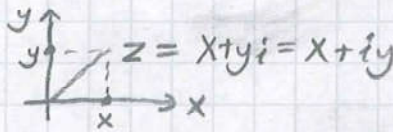 y
y z = x+yi = x+iy
x
x